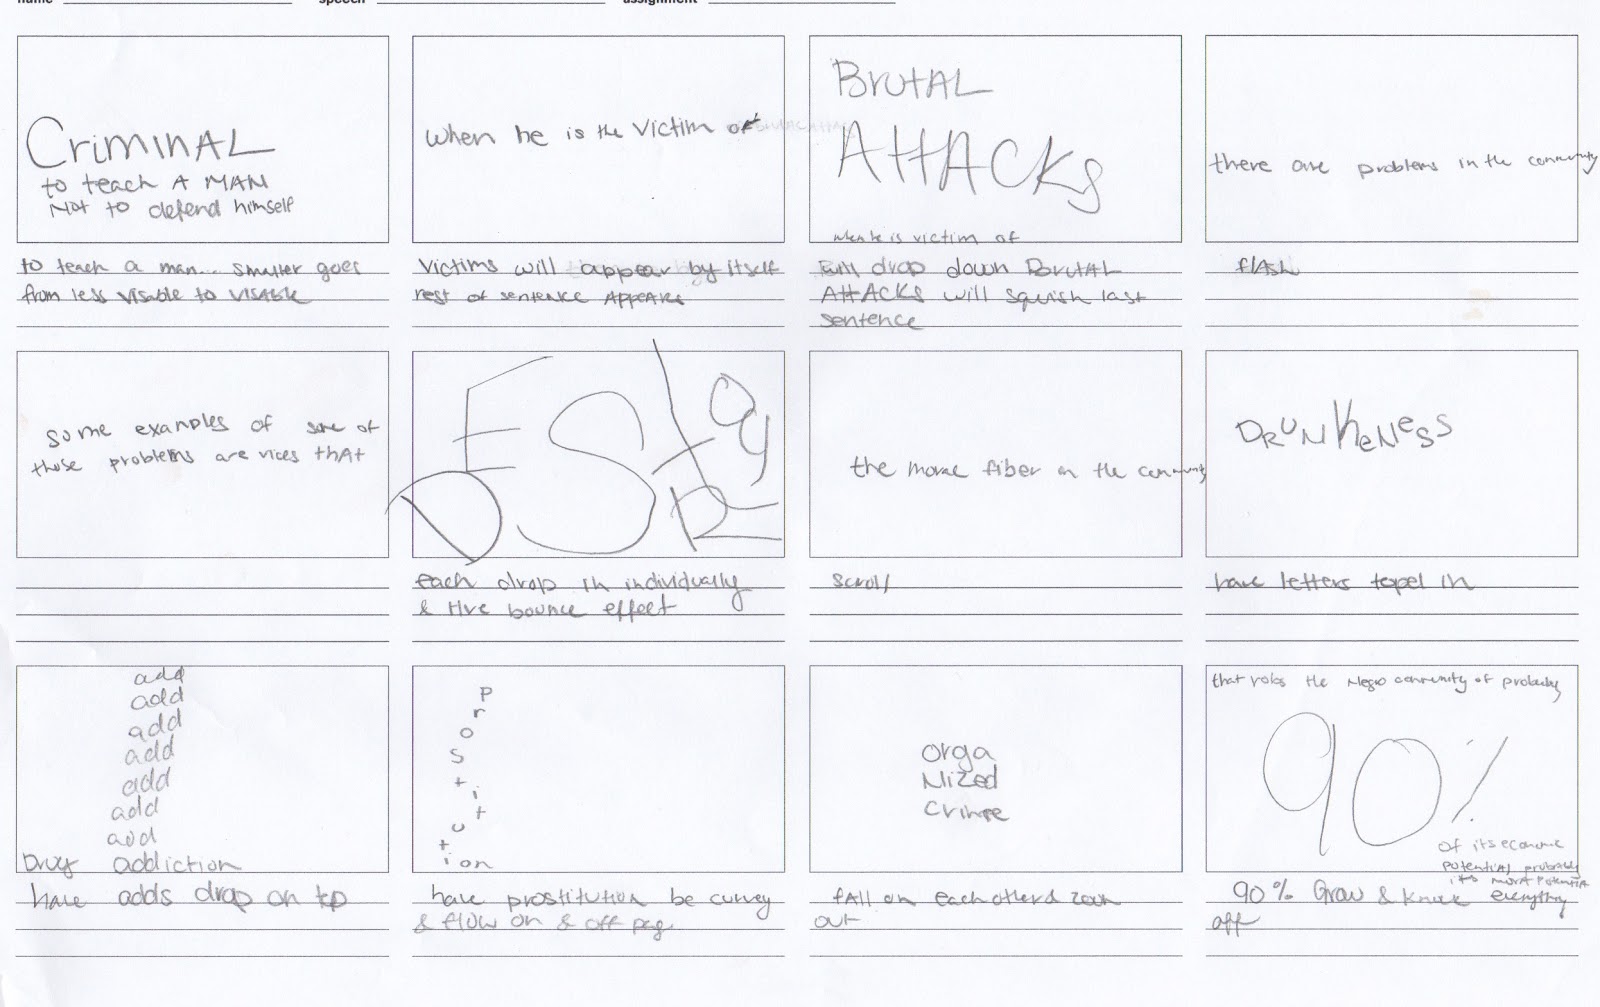 name speech assignment
CriminAL
to teach A MAN
Not to defend himself
to teach a man... smaller goes
from less visable to visable
when he is the victim of
victims will appear by itself
rest of sentence Appears
BrutAL
AttACKs
when he is victim of
will drop down BrutAL
AttACKs will squish last
sentence
there are problems in the community
flAsh
some examples of some of
those problems are vices thAt
DEStRoy
each drop in individually
& hve bounce effect
the morae fiber in the community
scroll
DRUNKeNess
have letters in
add
add
add
add
add
add
add
Drug addiction
have adds drop on top
Prostitution
have prostitution be curvey
& flow on & off page
orga
Nized
Crime
fall on each other & zoom
out
that robs the Negro community of probably
90%
of its economic
potential, probably
its moral potential
90% Grow & knock everything
off